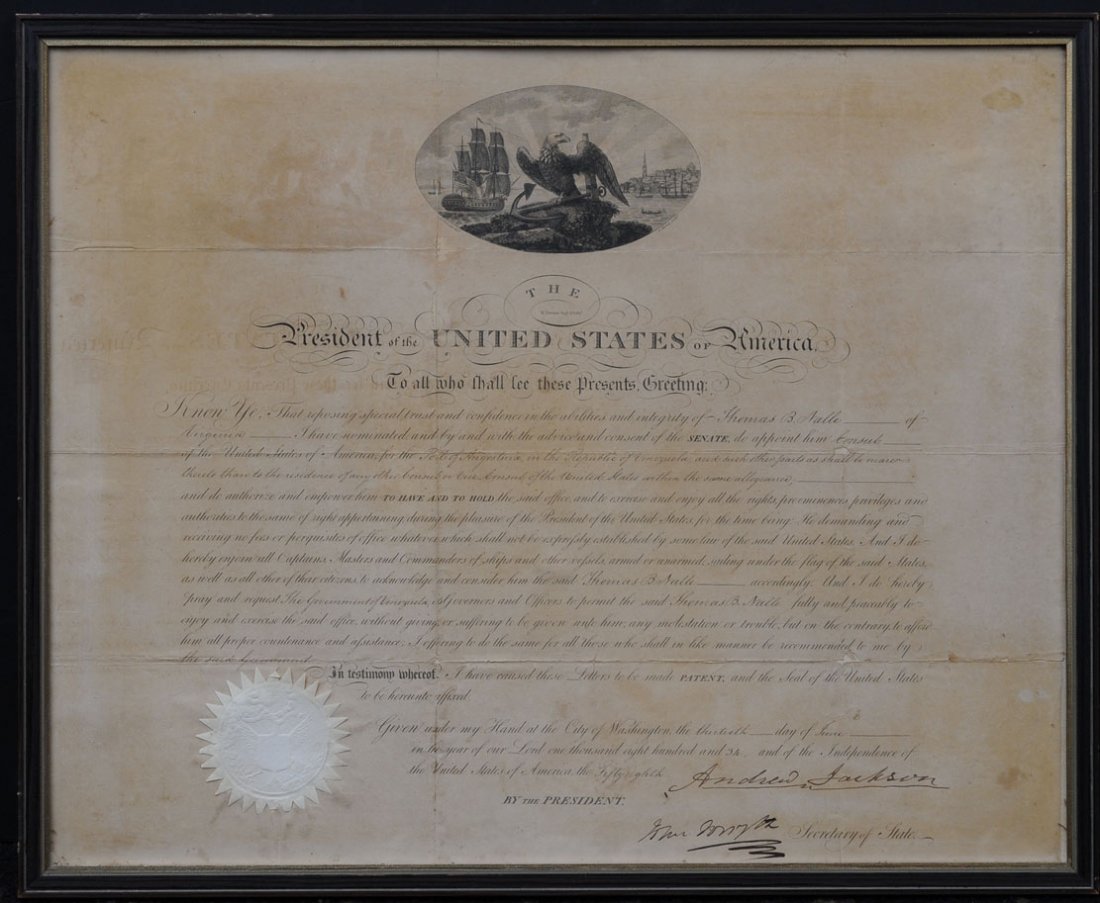 THE
President of the UNITED STATES OF America,
To all who shall see these Presents, Greeting:
Know Ye, That reposing special trust and confidence in the abilities and integrity of Thomas B. Nalle of
Virginia I have nominated and by and with the advice and consent of the SENATE, do appoint him Consul
of the United States of America, for the Port of Angostura, in the Republic of Venezuela, and such other parts as shall be nearer
thereto than to the residence of any other Consul or Vice Consul of the United States within the same allegiance,
and do authorize and empower him TO HAVE AND TO HOLD the said office, and to exercise and enjoy all the rights, preeminences, privileges and
authorities to the same of right appertaining, during the pleasure of the President of the United States, for the time being: He demanding and
receiving no fees or perquisites of office whatever, which shall not be expressly established by some law of the said United States. And I do
hereby enjoin all Captains, Masters and Commanders of ships and other vessels, armed or unarmed, sailing under the flag of the said States,
as well as all other of their citizens, to acknowledge and consider him the said Thomas B. Nalle accordingly. And I do hereby
pray and request The Government of Venezuela, its Governors and Officers to permit the said Thomas B. Nalle fully and peaceably to
enjoy and exercise the said office, without giving, or suffering to be given unto him, any molestation or trouble, but on the contrary, to afford
him all proper countenance and assistance; I offering to do the same for all those who shall in like manner be recommended to me by
the said Government.
In testimony whereof, I have caused these Letters to be made PATENT, and the Seal of the United States
to be hereunto affixed.
Given under my Hand at the City of Washington, the thirtieth day of June
in the year of our Lord one thousand eight hundred and 34, and of the Independence of
the United States of America, the Fifty eighth
Andrew Jackson
BY THE PRESIDENT.
Secretary of State.